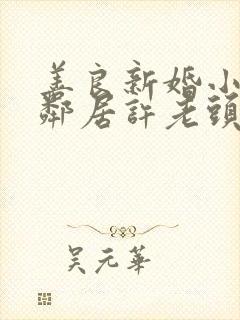 美良新婚小
鄰居許老頭
吴元華